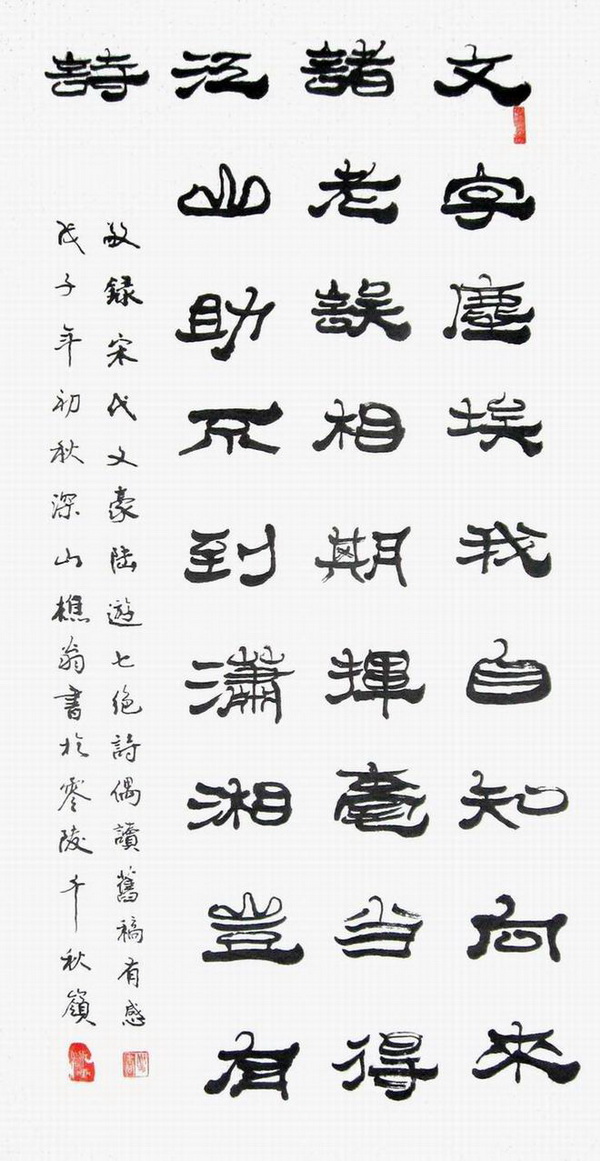 文字塵埃我自知向來
諸老誤相期揮毫当得
江山助不到瀟湘豈有
詩
敬録宋代文豪陸遊七绝詩偶讀舊稿有感
戊子年初秋深山樵翁書於零陵千秋嶺